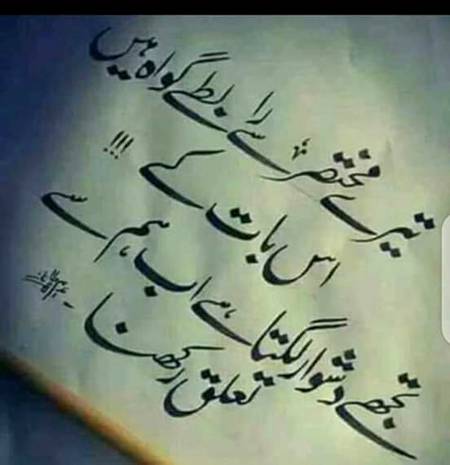 تیرے مختصر سے رابطے گواہ ہیں
اس بات کے !!!
تجھے دشوار لگتا ہے اب ہم سے
تعلق رکھنا